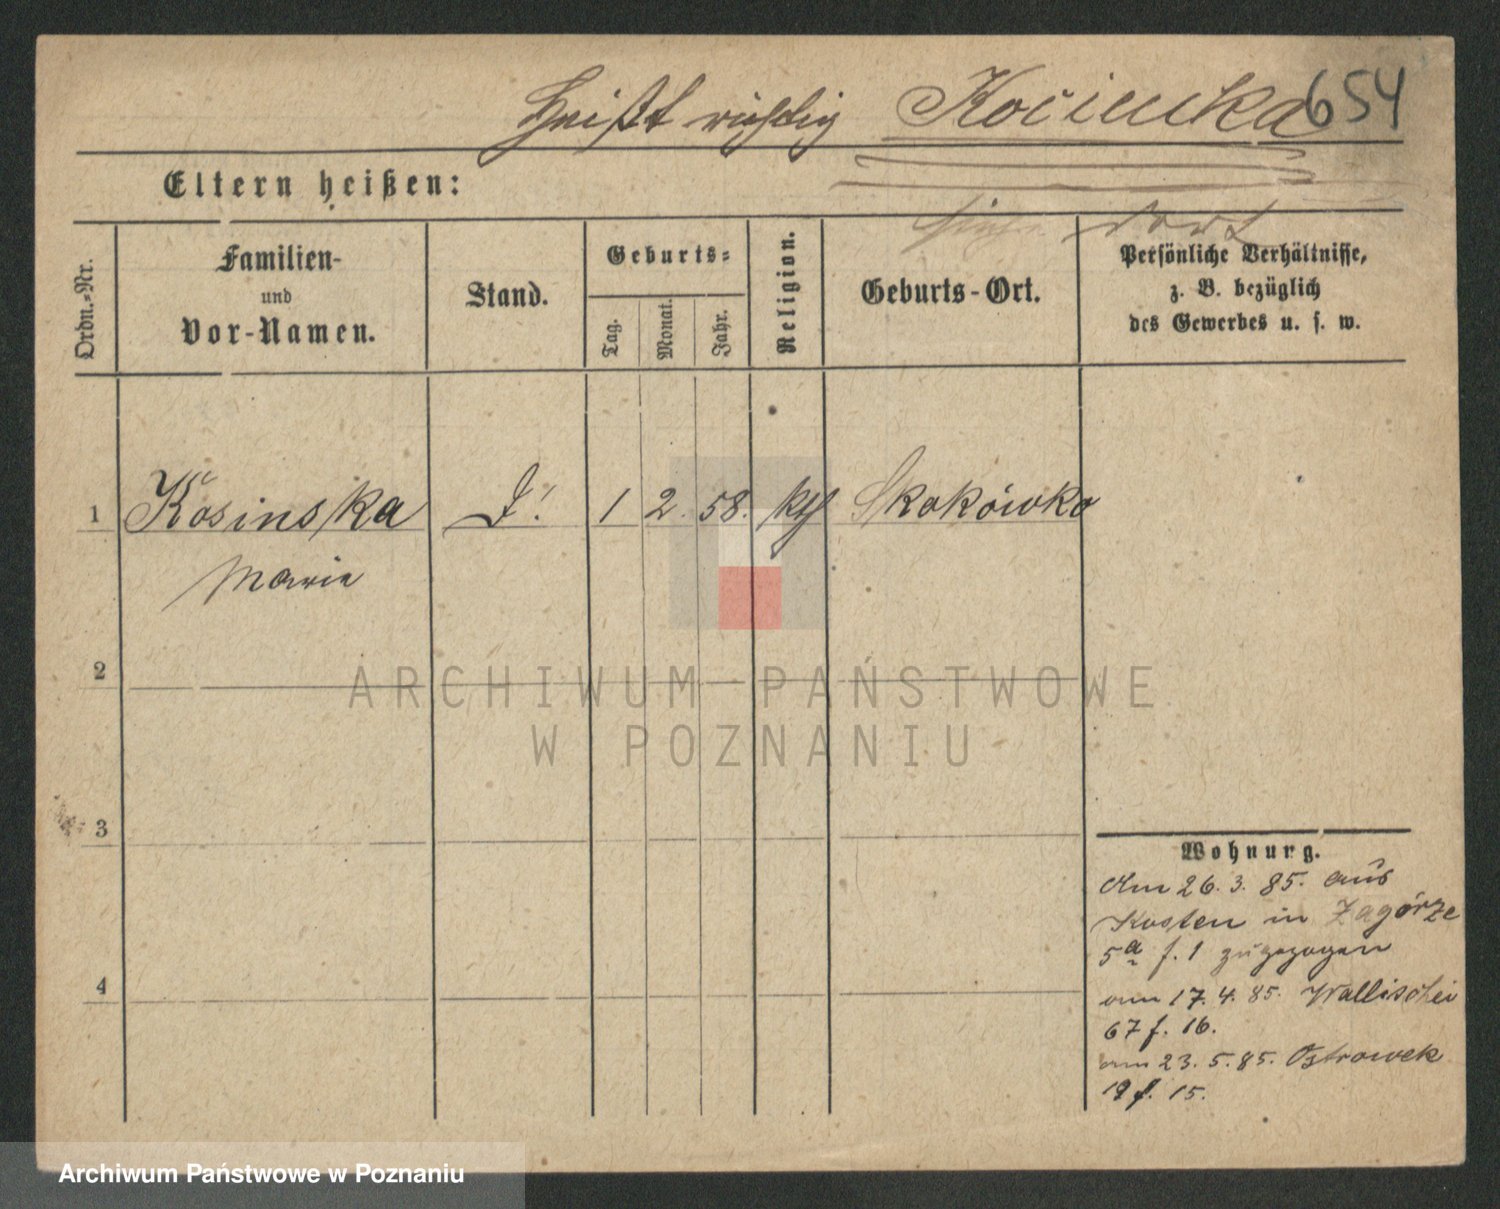 Heißt richtig Kocienka 654
Eltern heißen:
siehe dort
Ordn.=Nr.
Familien-
und
Vor-Namen.
Stand.
Geburts=
Tag.
Monat.
Jahr.
Religion.
Geburts-Ort.
Persönliche Verhältnisse,
z. B. bezüglich
des Gewerbes u. s. w.
1 Kosinska 1 2. 58. kth Skokówko
Marie
2
3
4
Wohnung.
Am 26. 3. 85. aus
Kosten in Zagórze
5a f. 1 zugezogen
am 17. 4. 85. Wallischei
67 f. 16.
am 23. 5. 85. Ostrowek
19 f. 15.
ARCHIWUM PAŃSTWOWE
W POZNANIU
Archiwum Państwowe w Poznaniu